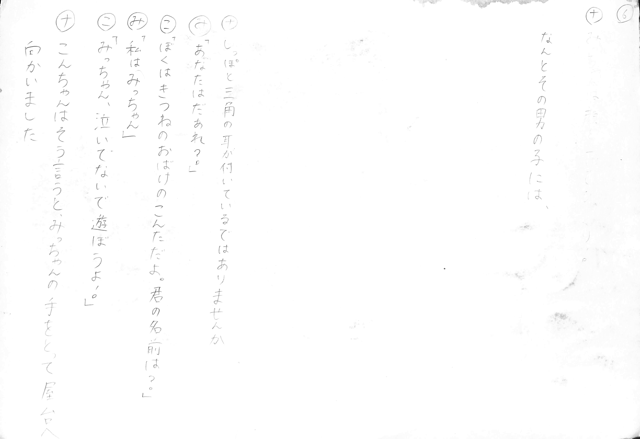 ⑥
ナ
なんとその男の子には、
ナ しっぽと三角の耳が付いているではありませんか
み「あなたはだあれ?」
こ「ぼくはきつねのおばけのこんただよ。君の名前は?」
み「私はみっちゃん」
こ「みっちゃん、泣いてないで遊ぼうよ!」
ナ こんちゃんはそう言うと、みっちゃんの手をとって屋台へ
向かいました